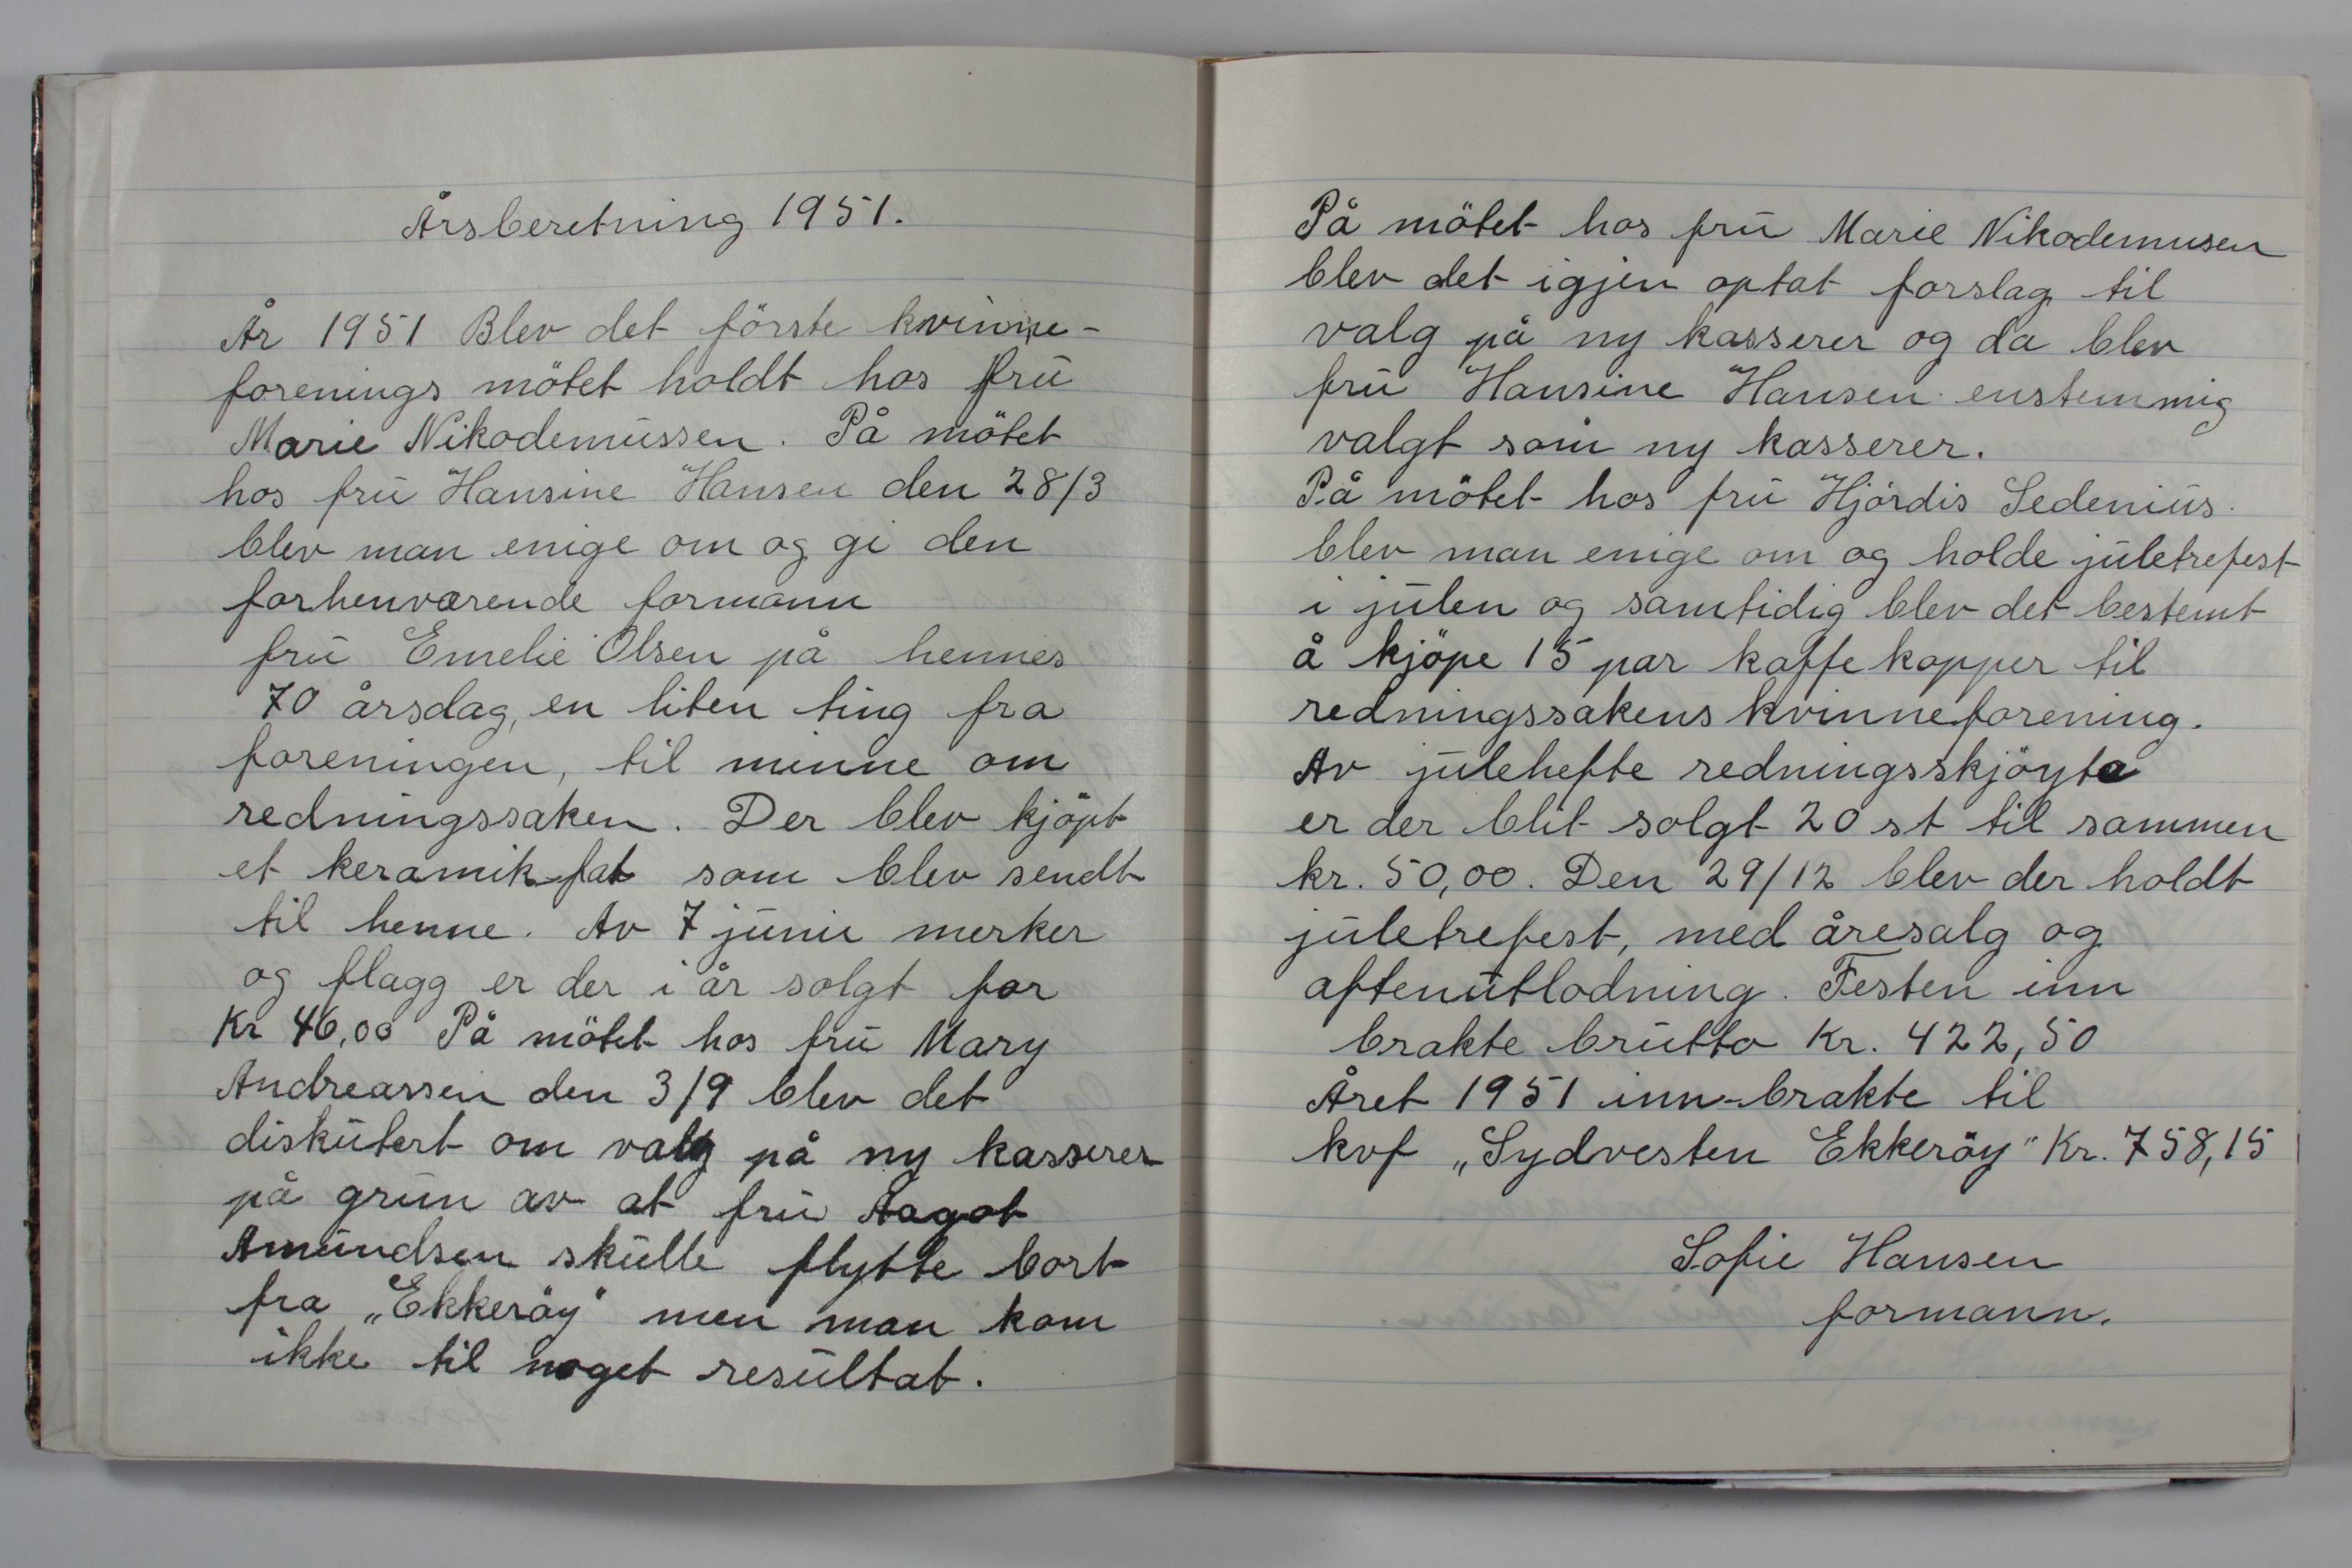 Årsberetning 1951.
År 1951 Blev det förste kvinne-
forenings mötet holdt hos fru
Marie Nikodemussen. På mötet
hos fru Hansine Hansen den 28/3
blev man enige om og gi den
forhenværende formann
fru Emelie Olsen på hennes
70 årsdag, en liten ting fra
foreningen, til minne om
redningssaken. Der blev kjöpt
et keramik-fat som blev sendt
til henne. Av 7 juni merker
og flagg er der i år solgt for
Kr 46,00 På mötet hos fru Mary
Andreassen den 3/9 blev det
diskutert om valg på ny kasserer
på grun av at fru Aagot
Amundsen skulle flytte bort
fra „Ekkeröy" men man kom
ikke til noget resultat.
På mötet hos fru Marie Nikodemusen
blev det igjen optat forslag til
valg på ny kasserer og da blev
fru Hansine Hansen enstemmig
valgt som ny kasserer.
På mötet hos fru Hjördis Sedenius.
blev man enige om og holde juletrefest
i julen og samtidig blev det bestemt
å kjöpe 15 par kaffe kopper til
redningssakens kvinneforening.
Av julehefte redningsskjöyta
er der blit solgt 20 st til sammen
kr. 50,00. Den 29/12 blev der holdt
juletrefest, med åresalg og
aftenutlodning. Festen inn
brakte brutto Kr. 422,50
Året 1951 inn-brakte til
kvf „Sydvesten Ekkeröy" Kr. 758,15
Sofie Hansen
formann.